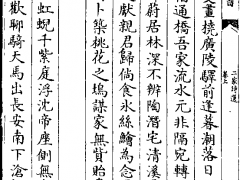 三家詩選
卷上
畫撓廣陵驛前逢暮潮落日
通橋吾家流水元非隔宛轉
蔚居林深不辨陶潛宅清溪
獻親君歸倘食氷絲鱠為念
卜築桃花之塢謀家無貲貽
虹蜺千紫庭浮沈帝座側無
歡聊騎天馬出長安南下滄